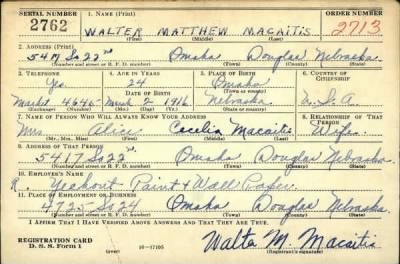 SERIAL NUMBER 1. NAME (Print) ORDER NUMBER
2762 WALTER MATTHEW MACAITIS 2713
(First) (Middle) (Last)
2. ADDRESS (Print)
5417 So 22nd. Omaha Douglas Nebraska
(Number and street or R. F. D. number) (Town) (County) (State)
3. TELEPHONE 4. AGE IN YEARS 5. PLACE OF BIRTH 6. COUNTRY OF CITIZENSHIP
Yes 24 Omaha
DATE OF BIRTH (Town or county)
Market 4645 March 2 1916 Nebraska U.S.A.
(Exchange) (Number) (Mo.) (Day) (Yr.) (State or country)
7. NAME OF PERSON WHO WILL ALWAYS KNOW YOUR ADDRESS 8. RELATIONSHIP OF THAT PERSON
Mrs. Alice Cecelia Macaitis Wife.
(Mr., Mrs., Miss) (First) (Middle) (Last)
9. ADDRESS OF THAT PERSON
5417 So 22nd. Omaha Douglas Nebraska
(Number and street or R. F. D. number) (Town) (County) (State)
10. EMPLOYER'S NAME
R. Yechout Paint & Wall Paper.
11. PLACE OF EMPLOYMENT OR BUSINESS
4725 So 24 Omaha Douglas Nebraska
(Number and street or R. F. D. number) (Town) (County) (State)
I AFFIRM THAT I HAVE VERIFIED ABOVE ANSWERS AND THAT THEY ARE TRUE.
REGISTRATION CARD
D. S. S. FORM 1 (over) 16-17105 Walter M. Macaitis
(Registrant's signature)